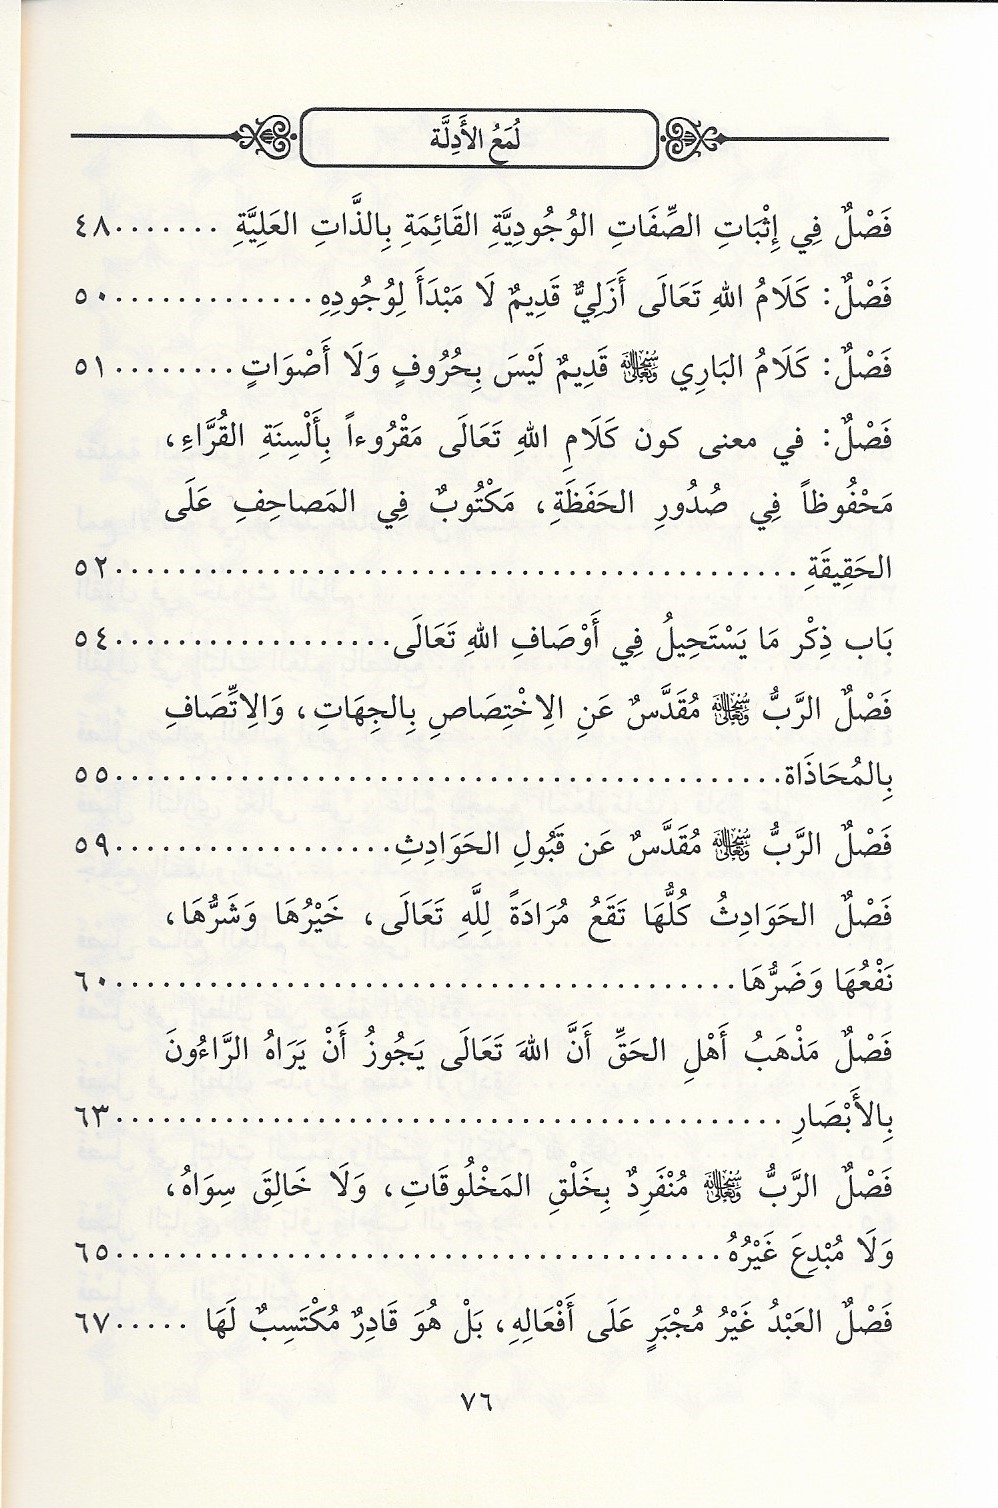 لُمَعُ الأَدِلَّة
فَصْلٌ فِي إِثْبَاتِ الصِّفَاتِ الوُجُودِيَّةِ القَائِمَةِ بِالذَّاتِ العَلِيَّةِ .......٤٨
فَصْلٌ: كَلَامُ اللهِ تَعَالَى أَزَلِيٌّ قَدِيمٌ لَا مَبْدَأَ لِوُجُودِهِ..............٥٠
فَصْلٌ: كَلَامُ البَارِي سُبْحَانَهُ وَتَعَالَى قَدِيمٌ لَيْسَ بِحُرُوفٍ وَلَا أَصْوَاتٍ.........٥١
فَصْلٌ: في معنى كون كَلَامِ اللهِ تَعَالَى مَقْرُوءاً بِأَلْسِنَةِ القُرَّاءِ،
مَحْفُوظاً فِي صُدُورِ الحَفَظَةِ، مَكْتُوبٌ فِي المَصَاحِفِ عَلَى
الحَقِيقَةِ ............................................٥٢
بَاب ذِكْر مَا يَسْتَحِيلُ فِي أَوْصَافِ اللهِ تَعَالَى...................٥٤
فَصْلٌ الرَّبُّ سُبْحَانَهُ وَتَعَالَى مُقَدَّسٌ عَنِ الِاخْتِصَاصِ بِالجِهَاتِ، وَالِاتِّصَافِ
بِالمُحَاذَاة...........................................٥٥
فَصْلٌ الرَّبُّ سُبْحَانَهُ وَتَعَالَى مُقَدَّسٌ عَن قَبُولِ الحَوَادِثِ...................٥٩
فَصْلٌ الحَوَادِثُ كُلُّهَا تَقَعُ مُرَادَةً لِلَّهِ تَعَالَى، خَيْرُهَا وَشَرُّهَا،
نَفْعُهَا وَضَرُّهَا........................................٦٠
فَصْلٌ مَذْهَبُ أَهْلِ الحَقِّ أَنَّ اللهَ تَعَالَى يَجُوزُ أَنْ يَرَاهُ الرَّاءُونَ
بِالأَبْصَارِ ...........................................٦٣
فَصْلٌ الرَّبُّ سُبْحَانَهُ وَتَعَالَى مُنْفَرِدٌ بِخَلْقِ المَخْلُوقَاتِ، وَلَا خَالِقَ سِوَاهُ،
وَلَا مُبْدِعَ غَيْرُهُ.......................................٦٥
فَصْلٌ العَبْدُ غَيْرُ مُجْبَرٍ عَلَى أَفْعَالِهِ، بَلْ هُوَ قَادِرٌ مُكْتَسِبٌ لَهَا .....٦٧
٧٦